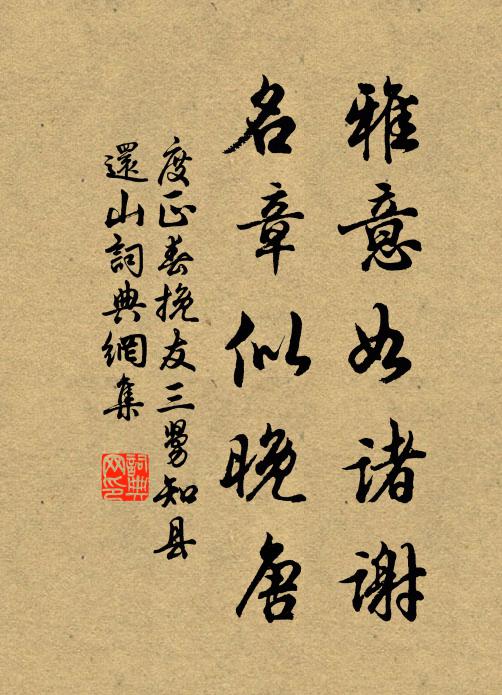 雅意如諸謝
名章似晚唐
度正奉挽友三舅知县
還山詞典網集
詞典
网印